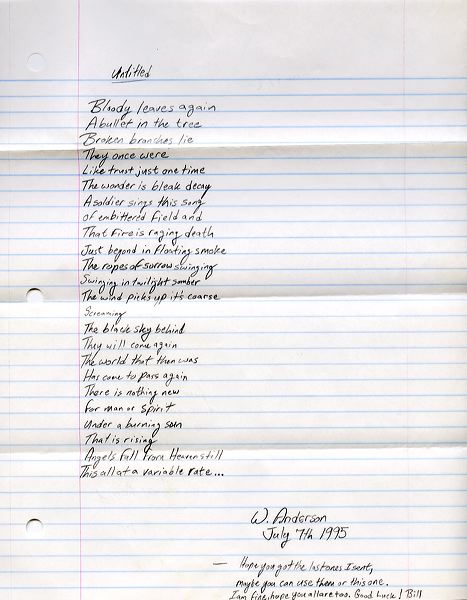 Untitled
Bloody leaves again
A bullet in the tree
Broken branches lie
They once were
Like trust just one time
The wonder is bleak decay
A soldier sings this song
of embittered field and
That Fire is raging death
Just beyond in floating smoke
The ropes of sorrow swinging
Swinging in twilight somber
The wind picks up it's coarse
Screaming
The black sky behind
They will come again
The world that then was
Has come to pass again
There is nothing new
For man or Spirit
Under a burning sun
That is rising
Angels Fall From Heaven still
This all at a variable rate...
W. Anderson
July 7th 1995
— Hope you got the last ones I sent,
maybe you can use them or this one.
I am fine, hope you all are too. Good Luck! Bill